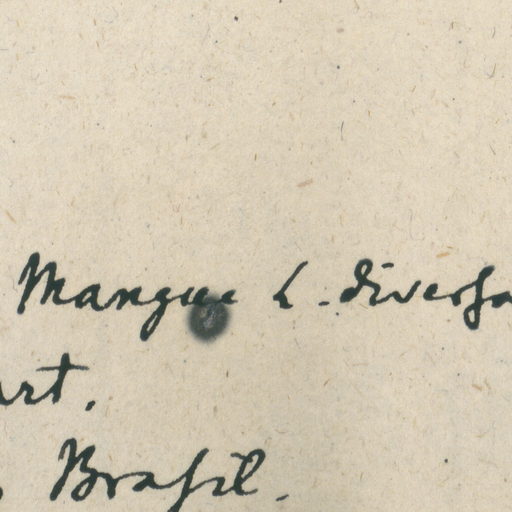 Mangue L. diversa
art.
Brasil.